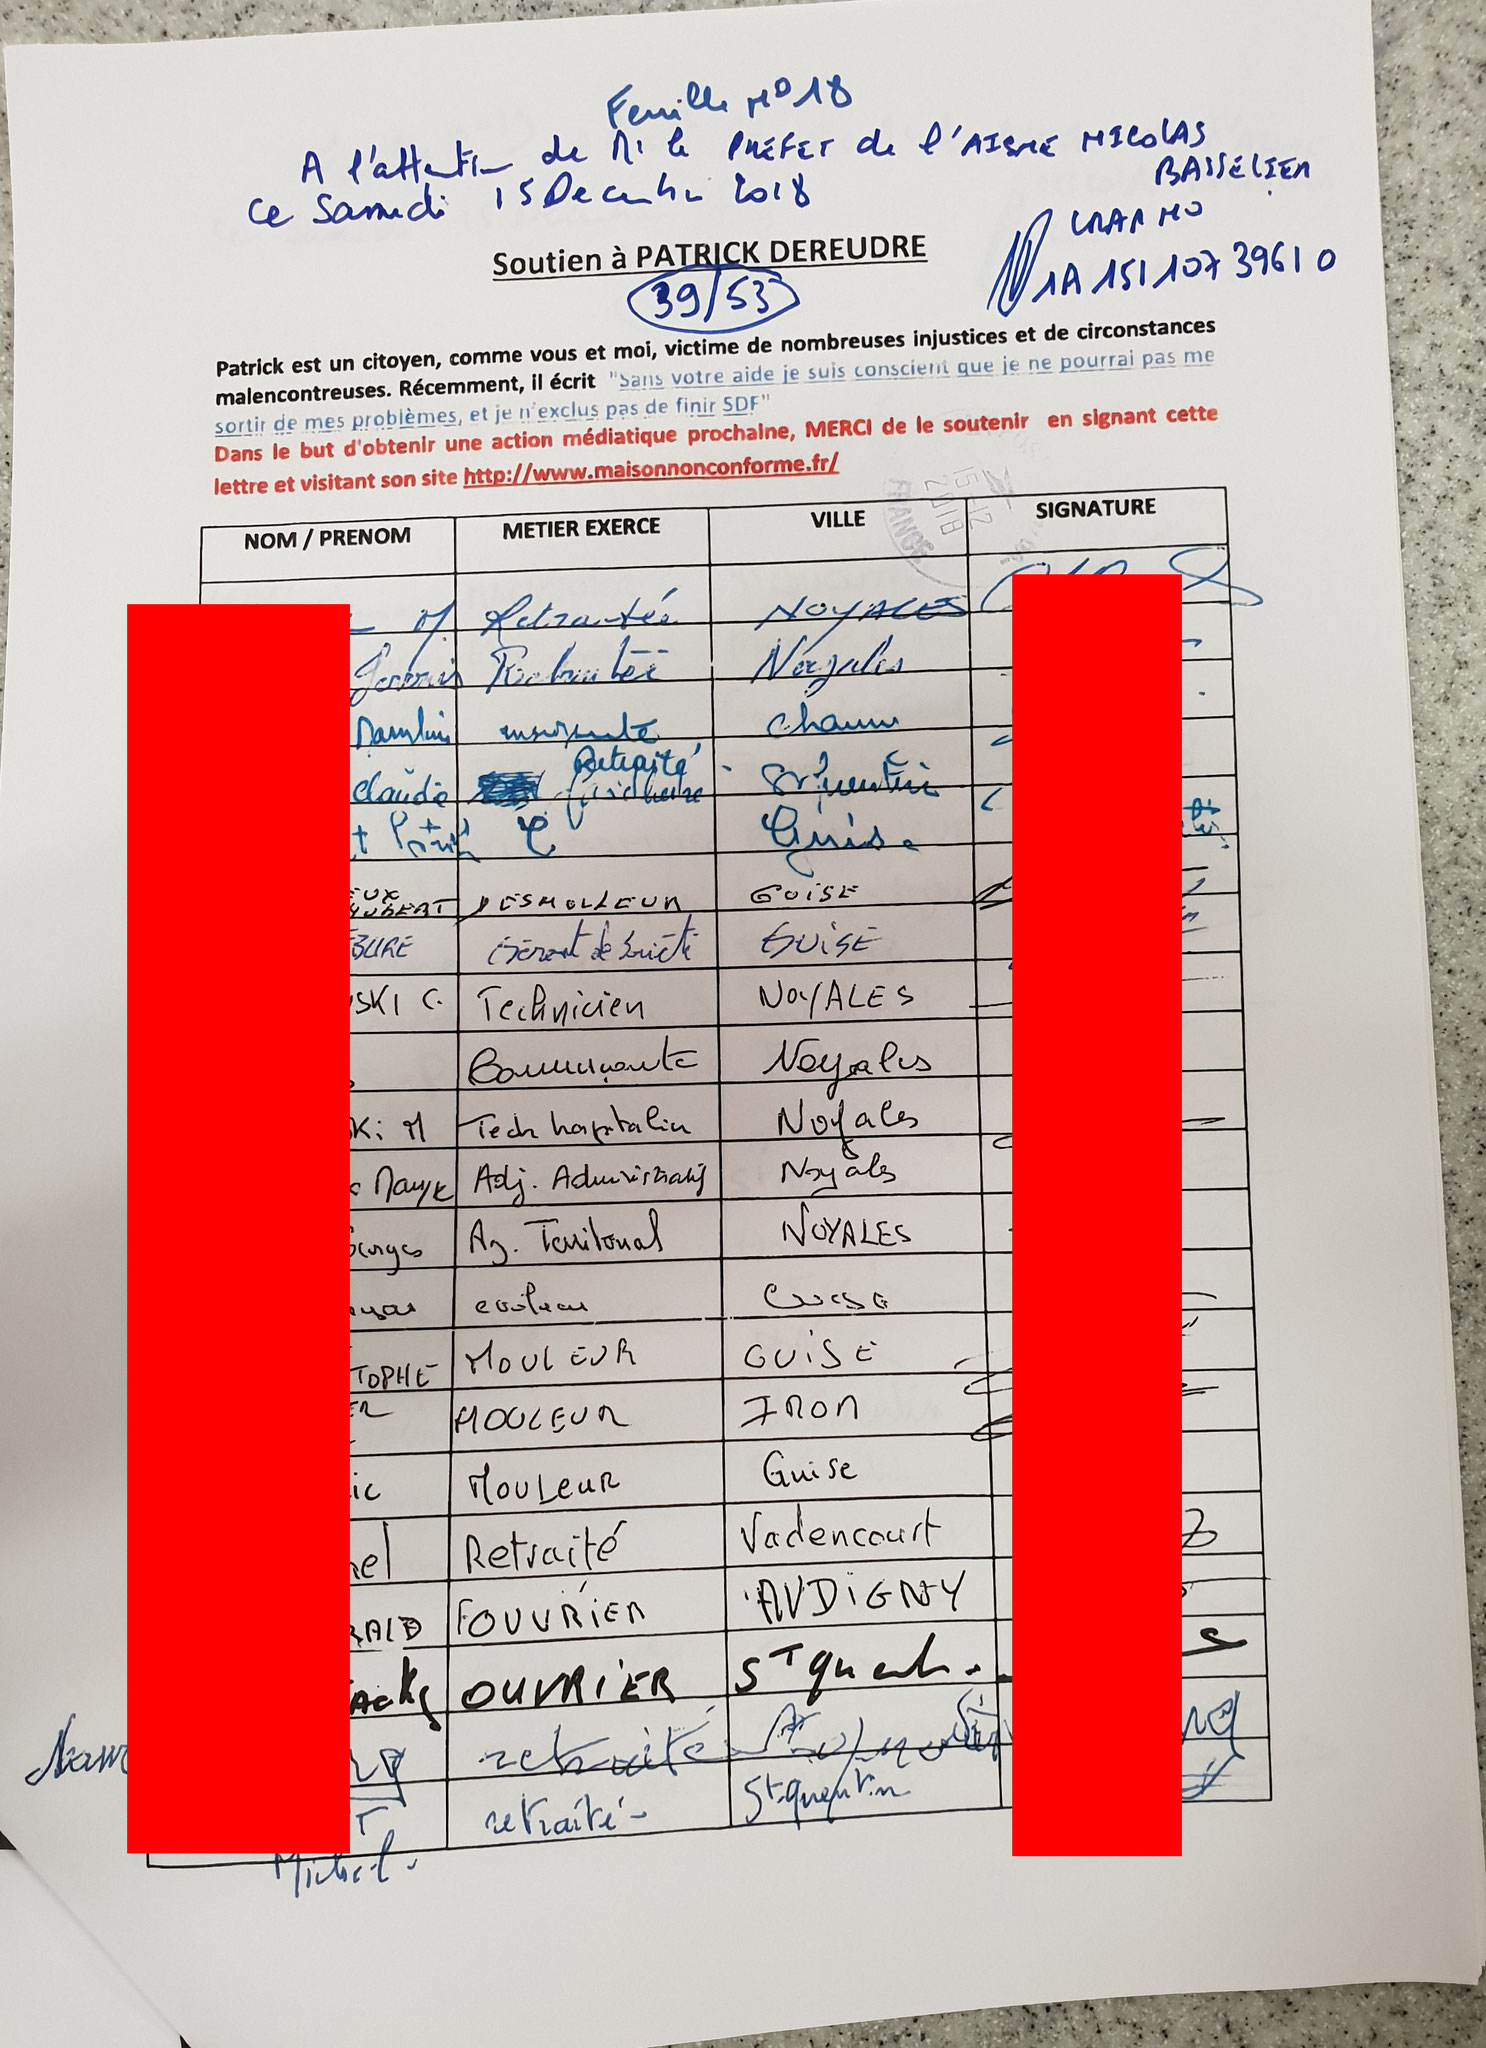 Feuille N° 18
A l'attention de Mr le PREFET de l'AISNE NICOLAS
BASSELIER
Ce Samedi 15 Decembre 2018
LRAR NO
1A 151 107 3961 0
Soutien à PATRICK DEREUDRE
39/53
Patrick est un citoyen, comme vous et moi, victime de nombreuses injustices et de circonstances
malencontreuses. Récemment, il écrit "Sans votre aide je suis conscient que je ne pourrai pas me
sortir de mes problèmes, et je n'exclus pas de finir SDF"
Dans le but d'obtenir une action médiatique prochaine, MERCI de le soutenir en signant cette
lettre et visitant son site http://www.maisonnonconforme.fr/
15-12
2018
FRANCE
NOM / PRENOM METIER EXERCE VILLE SIGNATURE
M. Retraitée NOYALES
Retraitée Noyales
Claude Retraité St Quentin
Guise
UBERT GUISE
BURE Gérant de Société GUISE
SKI C. Technicien NOYALES
Noyales
Ki M Tech hospitalier Noyales
Adj. Administratif Noyales
Georges Ag. Territorial NOYALES
TOPHE MOULEUR GUISE
ER MOULEUR IRON
ic MouLeuR Guise
el Retraité Vadencourt
RALD OUVRIER AUDIGNY
OUVRIER St Quentin
retraité
T retraité St Quentin
Michel